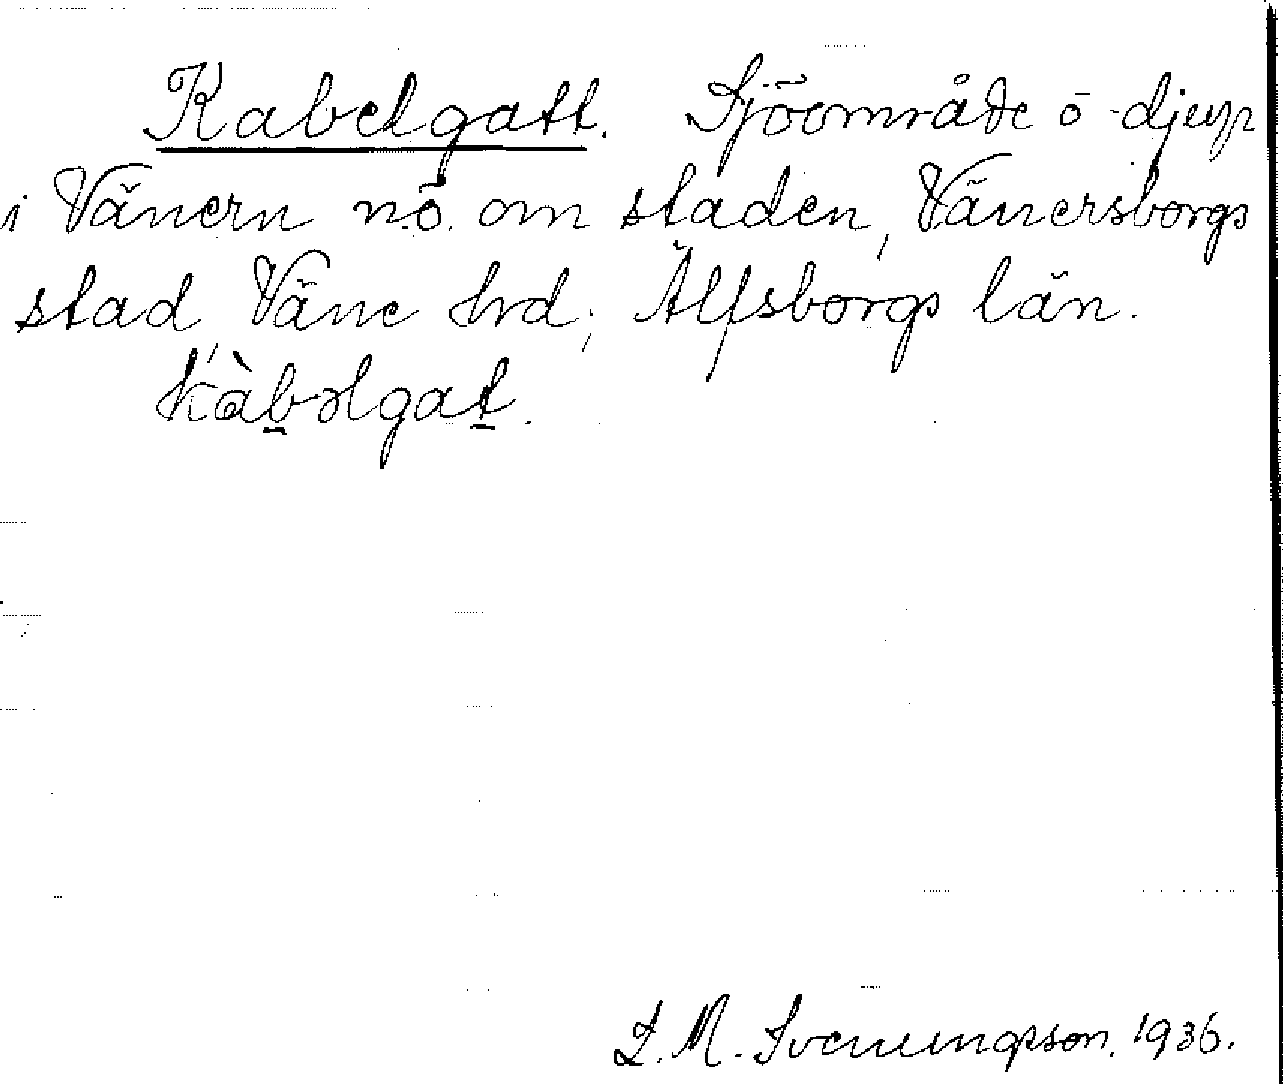 Kabelgatt. Sjöområde o -djup
i Vänern n.ö. om staden, Vänersborgs
stad, Väne hrd, Älfsborgs län.
kàbəlgat.
J. M. Svenungsson. 1936.